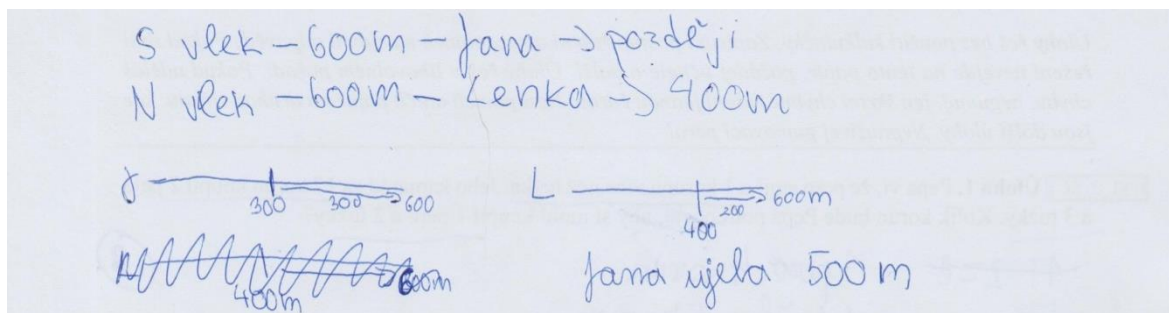 S vlek – 600m – Jana → později
N vlek – 600m – Lenka → 400m
J 300 300 600
L 400 200 600m
400m 600m
Jana ujela 500 m